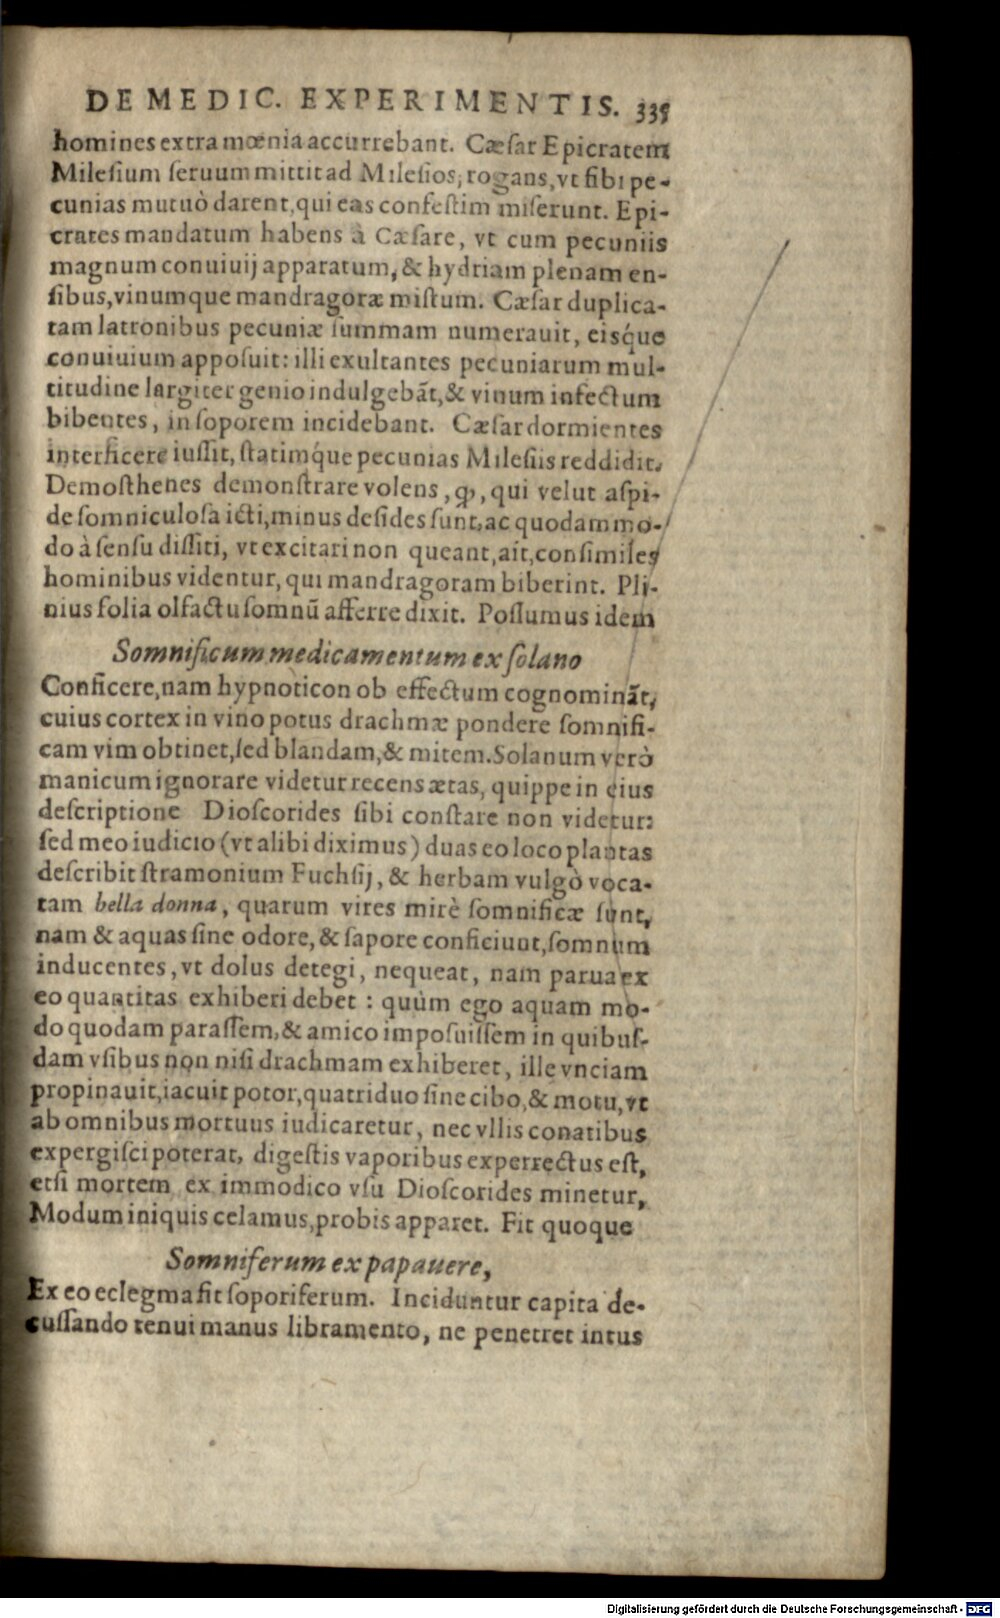 DE MEDIC. EXPERIMENTIS. 335
homines extra mœnia accurrebant. Cæſar Epicratem
Mileſium ſeruum mittit ad Mileſios, rogans, vt ſibi pe-
cunias mutuò darent, qui eas confeſtim miſerunt. Epi-
crates mandatum habens à Cæſare, vt cum pecuniis
magnum conuiuij apparatum, & hydriam plenam en-
ſibus, vinumque mandragoræ miſtum. Cæſar duplica-
tam latronibus pecuniæ ſummam numerauit, eisq́ue
conuiuium appoſuit: illi exultantes pecuniarum mul-
titudine largiter genio indulgebãt, & vinum infectum
bibentes, in ſoporem incidebant. Cæſar dormientes
interficere iuſſit, ſtatimq́ue pecunias Mileſiis reddidit.
Demoſthenes demonſtrare volens, ꝙ, qui velut aſpi-
de ſomniculoſa icti, minus deſides ſunt, ac quodammo-
do à ſenſu diſſiti, vt excitari non queant, ait, conſimiles
hominibus videntur, qui mandragoram biberint. Pli-
nius folia olfactu ſomnũ afferre dixit. Poſſumus idem
Somnificum medicamentum ex ſolano
Conficere, nam hypnoticon ob effectum cognominãt,
cuius cortex in vino potus drachmæ pondere ſomnifi-
cam vim obtinet, ſed blandam, & mitem. Solanum verò
manicum ignorare videtur recens ætas, quippe in eius
deſcriptione Dioſcorides ſibi conſtare non videtur:
ſed meo iudicio (vt alibi diximus) duas eo loco plantas
deſcribit ſtramonium Fuchſij, & herbam vulgò voca-
tam bella donna, quarum vires mirè ſomnificæ ſunt,
nam & aquas ſine odore, & ſapore conficiunt, ſomnum
inducentes, vt dolus detegi, nequeat, nam parua ex
eo quantitas exhiberi debet : quùm ego aquam mo-
do quodam paraſſem, & amico impoſuiſſem in quibuſ-
dam vſibus non niſi drachmam exhiberet, ille vnciam
propinauit, iacuit potor, quatriduo ſine cibo, & motu, vt
ab omnibus mortuus iudicaretur, nec vllis conatibus
expergiſci poterat, digeſtis vaporibus experrectus eſt,
etſi mortem ex immodico vſu Dioſcorides minetur,
Modum iniquis celamus, probis apparet. Fit quoque
Somniferum ex papauere,
Ex eo eclegma fit ſoporiferum. Inciduntur capita de-
cuſſando tenui manus libramento, ne penetret intus
Digitalisierung gefördert durch die Deutsche Forschungsgemeinschaft - DFG